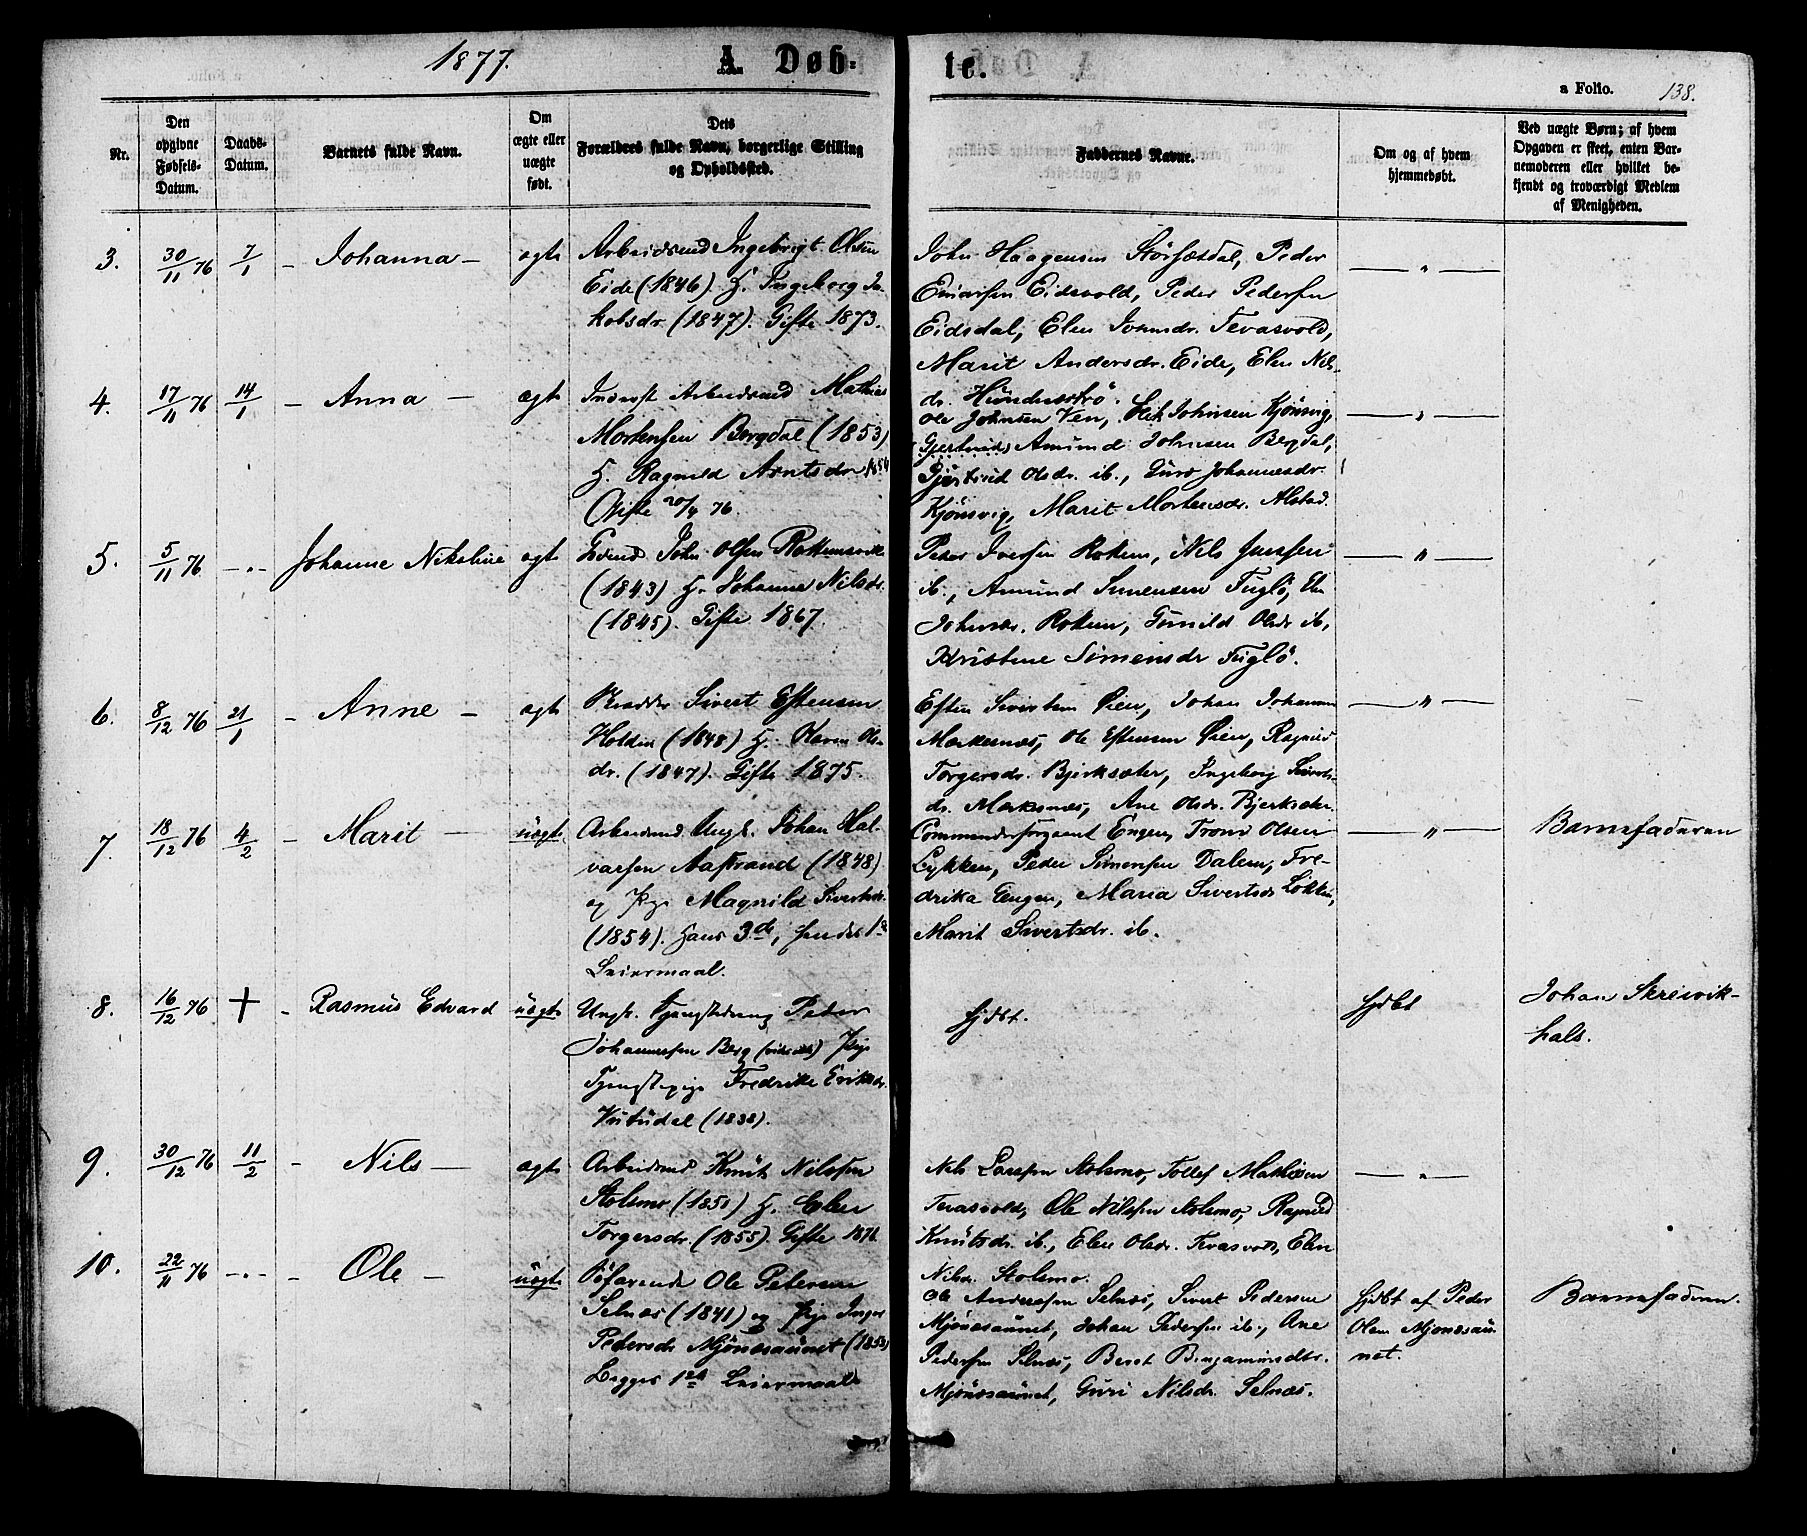 1877.
A. Døb-
te.
a Folio. 138.
Nr.
Den opgivne Fødsels-Datum.
Daabs-Datum.
Barnets fulde Navn.
Om ægte eller uægte født.
Dets
Forældres fulde Navn, borgerlige Stilling
og Opholdssted.
Faddernes Navne.
Om og af hvem
hjemmedøbt.
Ved uægte Børn; af hvem
Opgaven er skeet, enten Bar-
nemoderen eller hvilket be-
kjendt og troværdigt Medlem
af Menigheden.
3. 30/11 76 7/1 - Johanna - ægte
Arbeidsmd Ingebrigt Olsen
Eide (1846). H. Ingeborg Ja-
kobsdr (1847). Gifte 1873.
John Haagensen Storfosdal, Peder
Einarsen Eidsvold, Peder Pedersen
Eidsdal, Elen Tevasvold,
Marit Andersdr. Eide, Elen Nels-
dr.
— " —
4. 17/11 76 14/1 - Anna - ægte
Inderst Arbeidsmd Mathias
Mortensen Bergdal (1853)
H. Ragnild Arntsdr 1854
Gifte 20/4 76.
Ole Johnsen Ven, Johnsen Kjønsvig,
Gjertrud Amund Johnsen Bergdal,
Gjertrud Olsdr. ib., Guro Johannesdr.
Kjønsvig, Marit Mortensdr. Alstad.
— " —
5. 5/11 76 - " - Johanne Nikoline ægte
John Olsen
(1843) H. Johanna Nilsdr.
(1845). Gifte 1867.
Peter Iversen Rokem, Nels Jenssen
ib., Amund Simensen Fuglø, Elen
Johnsdr. Rokem, Gunild Olsdr ib,
Kristine Simensdr Fuglø.
— " —
6. 8/12 76 21/1 - Anne - ægte
Sivert Estensen
Holden (1848) H. Karen Ols-
dr. (1847). Gifte 1875.
Esten Sivertsen Øien, Johan Johannes
Merkesnæs, Ole Estensen Øien, Ragnild
Torgersdr. Bjerksæter, Ingeborg Siverts-
dr. Merkesnæs, Ane Olsdr. Bjerksæter.
— " —
7. 18/12 76 4/2 - Marit - uægte
Arbeidsmd. Ungk. Johan Hal-
varsen Aastrand (1848)
og Pige Magnild Sivertsdr.
(1854). Hans 3de, hendes 1ste
Leiermaal.
Commandersergeant Engen, Trond Olsen
Lykken, Peder Simonsen Dalem, Fre-
drika Engen, Maria Sivertsdr Løkken,
Marit Sivertsdr. ib.
— " —
Barnefaderen
8. 16/12 76 + - Rasmus Edvard uægte
Ungk. Tjenestedreng Peter
Johannesen Berg Pige
Tjenestepige Fredrike Eriksdr.
(1838).
hjdbt.
hjdbt
Johan Skreivik-
hals.
9. 30/12 76 11/2 - Nils - ægte
Arbeidsmd Knut Nilssen
Stolsmo (1851) H. Elen
Torgersdr. (1855). Gifte 1876.
Nels Larssen Stolsmo, Tollef Mathisen
Tevasvold, Ole Nilssen Stolsmo, Ragnild
Knutsdr. ib., Elen Olsdr. Tevasvold, Elen
Nilsdr. Stolsmo.
— " —
10. 22/11 76 - " - - Ole - uægte
Søfarende Ole Petersen
Selnæs (1841) og Pige Inger
Petersdr Mjønesaunet (1853)
Begges 1ste Leiermaal
Ole Anderssen Selnæs, Sivert Pedersen
Mjønesaunet, Johan Pedersen ib., Ane
Pedersen Selnæs, Beret Bengamindtr.
Mjønesaunet, Guri Nilsdr. Selnæs.
hjdbt af Peder
Olsen Mjønesau-
net.
Barnefaderen.